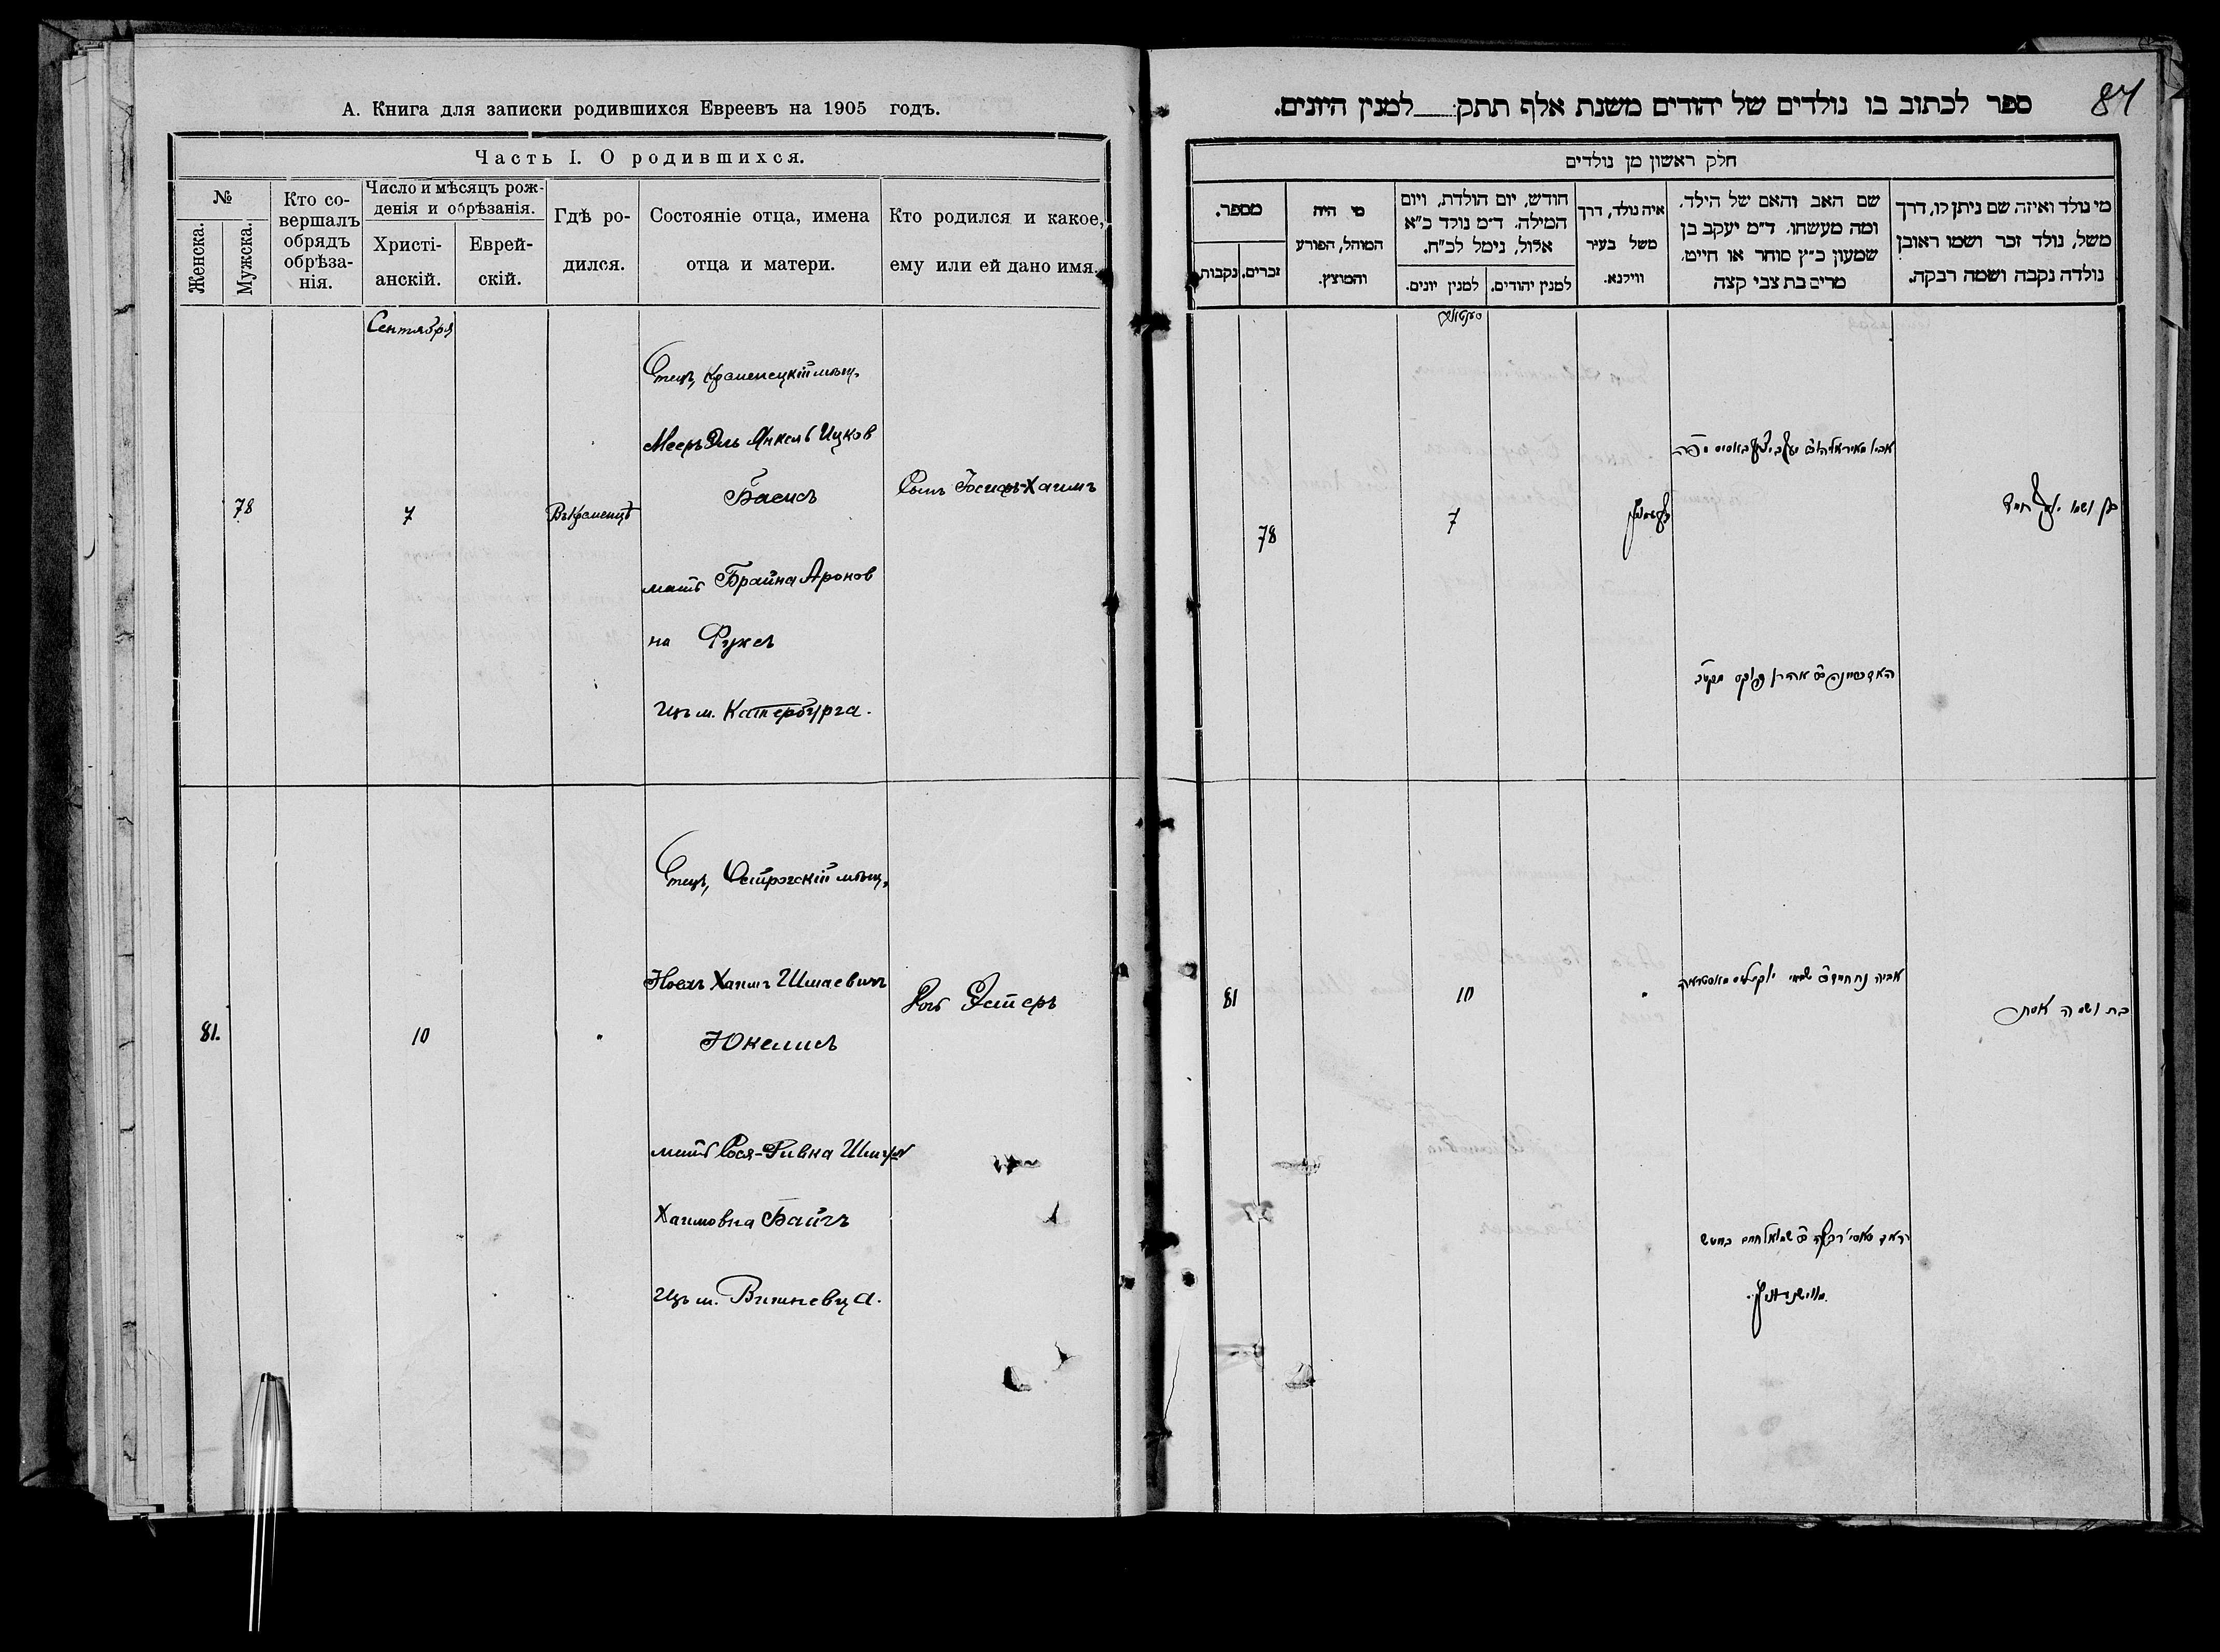 А. Книга для записки родившихся Евреевъ на 1905 годъ.
Часть I. О родившихся.
№
Женска.
Мужска.
Кто со-
вершалъ
обрядъ
обрѣза-
нія.
Число и мѣсяцъ рож-
денія и обрѣзанія.
Христі-
анскій.
Еврей-
скій.
Гдѣ ро-
дился.
Состояніе отца, имена
отца и матери.
Кто родился и какое,
ему или ей дано имя.
Сентября
78
7
Въ Кременцѣ
Отецъ, Кременецкій мѣщ.
Мееръ Эль Янкель Ицков
Басисъ
мать Брайна Аронов
на Фуксъ
изъ м. Катербурга.
Сынъ Іосифъ-Хаимъ
81.
10
"
Отецъ, Острогскій мѣщ.
Ноехъ Хаимъ Шмаевичъ
Юкелисъ
мать Рося-Ривка
Хаимовна
изъ м. Вишневца.
Дочь Эстеръ
84
ספר לכתוב בו נולדים של יהודים משנת אלף תתק למנין היונים.
חלק ראשון מן נולדים
מספר.
נקבות
זכרים.
מי היה
המוהל, הפורע
והמוצץ.
חודש, יום הולדת, ויום
המילה. ד״מ נולד כ״א
אלול, נימל לכ״ח.
למנין יונים.
למנין יהודים.
איה נולד, דרך
משל בעיר
ווילנא.
שם האב והאם של הילד,
ומה מעשהו. ד״מ יעקב בן
שמעון כ״ץ סוחר או חייט.
מרים בת צבי קצה
מי נולד ואיזה שם ניתן לו, דרך
משל, נולד זכר ושמו ראובן
נולדה נקבה ושמה רבקה.
78
7
בן ושמו יוסף חיים
81
10
"
בת ושמה אסתר